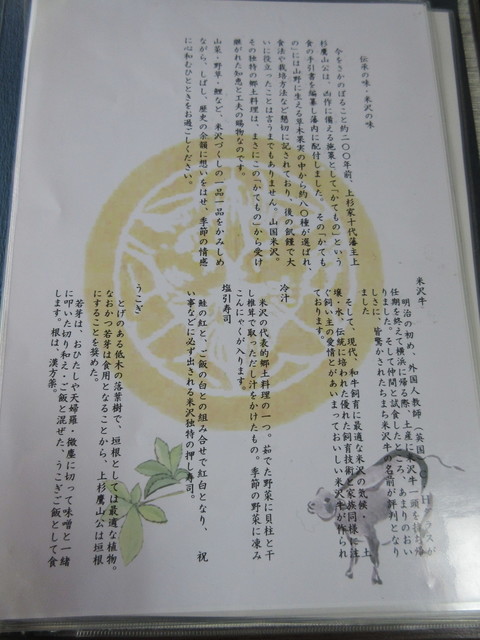 伝承の味・米沢の味
今をさかのぼること約二〇〇年前、上杉家十代藩主上
杉鷹山公は、凶作に備える施策として「かてもの」という
食の手引書を編纂し藩内に配付しました。その「かても
の」には山野に生える草木果実の中から約八〇種が選ばれ、
食法や栽培方法など懇切に記されており、後の飢饉で大
いに役立ったことは言うまでもありません。山国米沢。
その独特の郷土料理は、まさにこの「かてもの」から受け
継がれた知恵と工夫の賜物なのです。
山菜・野草・鯉など、米沢づくしの一品一品をかみしめ
ながら、しばし、歴史の余韻に想いをはせ、季節の情感
に心和むひとときをお過ごしください。
米沢牛
明治の初め、外国人教師(英国
任期を終えて横浜に帰る際、土産に米沢牛一頭を持ち帰
りました。そして仲間と試食したところ、あまりのおい
しさに、皆驚かされたちまち米沢牛の名前が評判となり
ました
そして、現代、和牛飼育に最適な米沢の気候・土
壌・水、伝統に培われた優れた飼育技術と家族同様に注
ぐ飼い主の愛情とがあいまっておいしい米沢牛が作られ
ております。
冷汁
米沢の代表的郷土料理の一つ。茹でた野菜に貝柱と干
し椎茸で取っただし汁をかけたもの。季節の野菜に凍み
こんにゃくが入ります。
塩引寿司
鮭の紅と、ご飯の白との組み合せで紅白となり、祝
い事などに必ず出される米沢独特の押し寿司。
うこぎ
とげのある低木の落葉樹で、垣根としては最適な植物。
なおかつ若芽は食用となることから、上杉鷹山公は垣根
にすることを奨めた。
若芽は、おひたしや天婦羅・微塵に切って味噌と一緒
に叩いた切り和え・ご飯と混ぜた、うこぎご飯として食
します。根は、漢方薬。